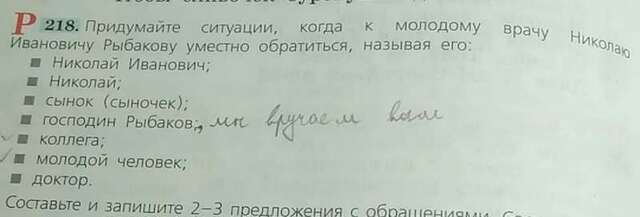 Р 218. Придумайте ситуации, когда к молодому врачу Николаю
Ивановичу Рыбакову уместно обратиться, называя его:
■ Николай Иванович;
■ Николай;
■ сынок (сыночек);
■ господин Рыбаков; , мы вручаем вам
■ коллега;
■ молодой человек;
■ доктор.
Составьте и запишите 2–3 предложения с обращениями.